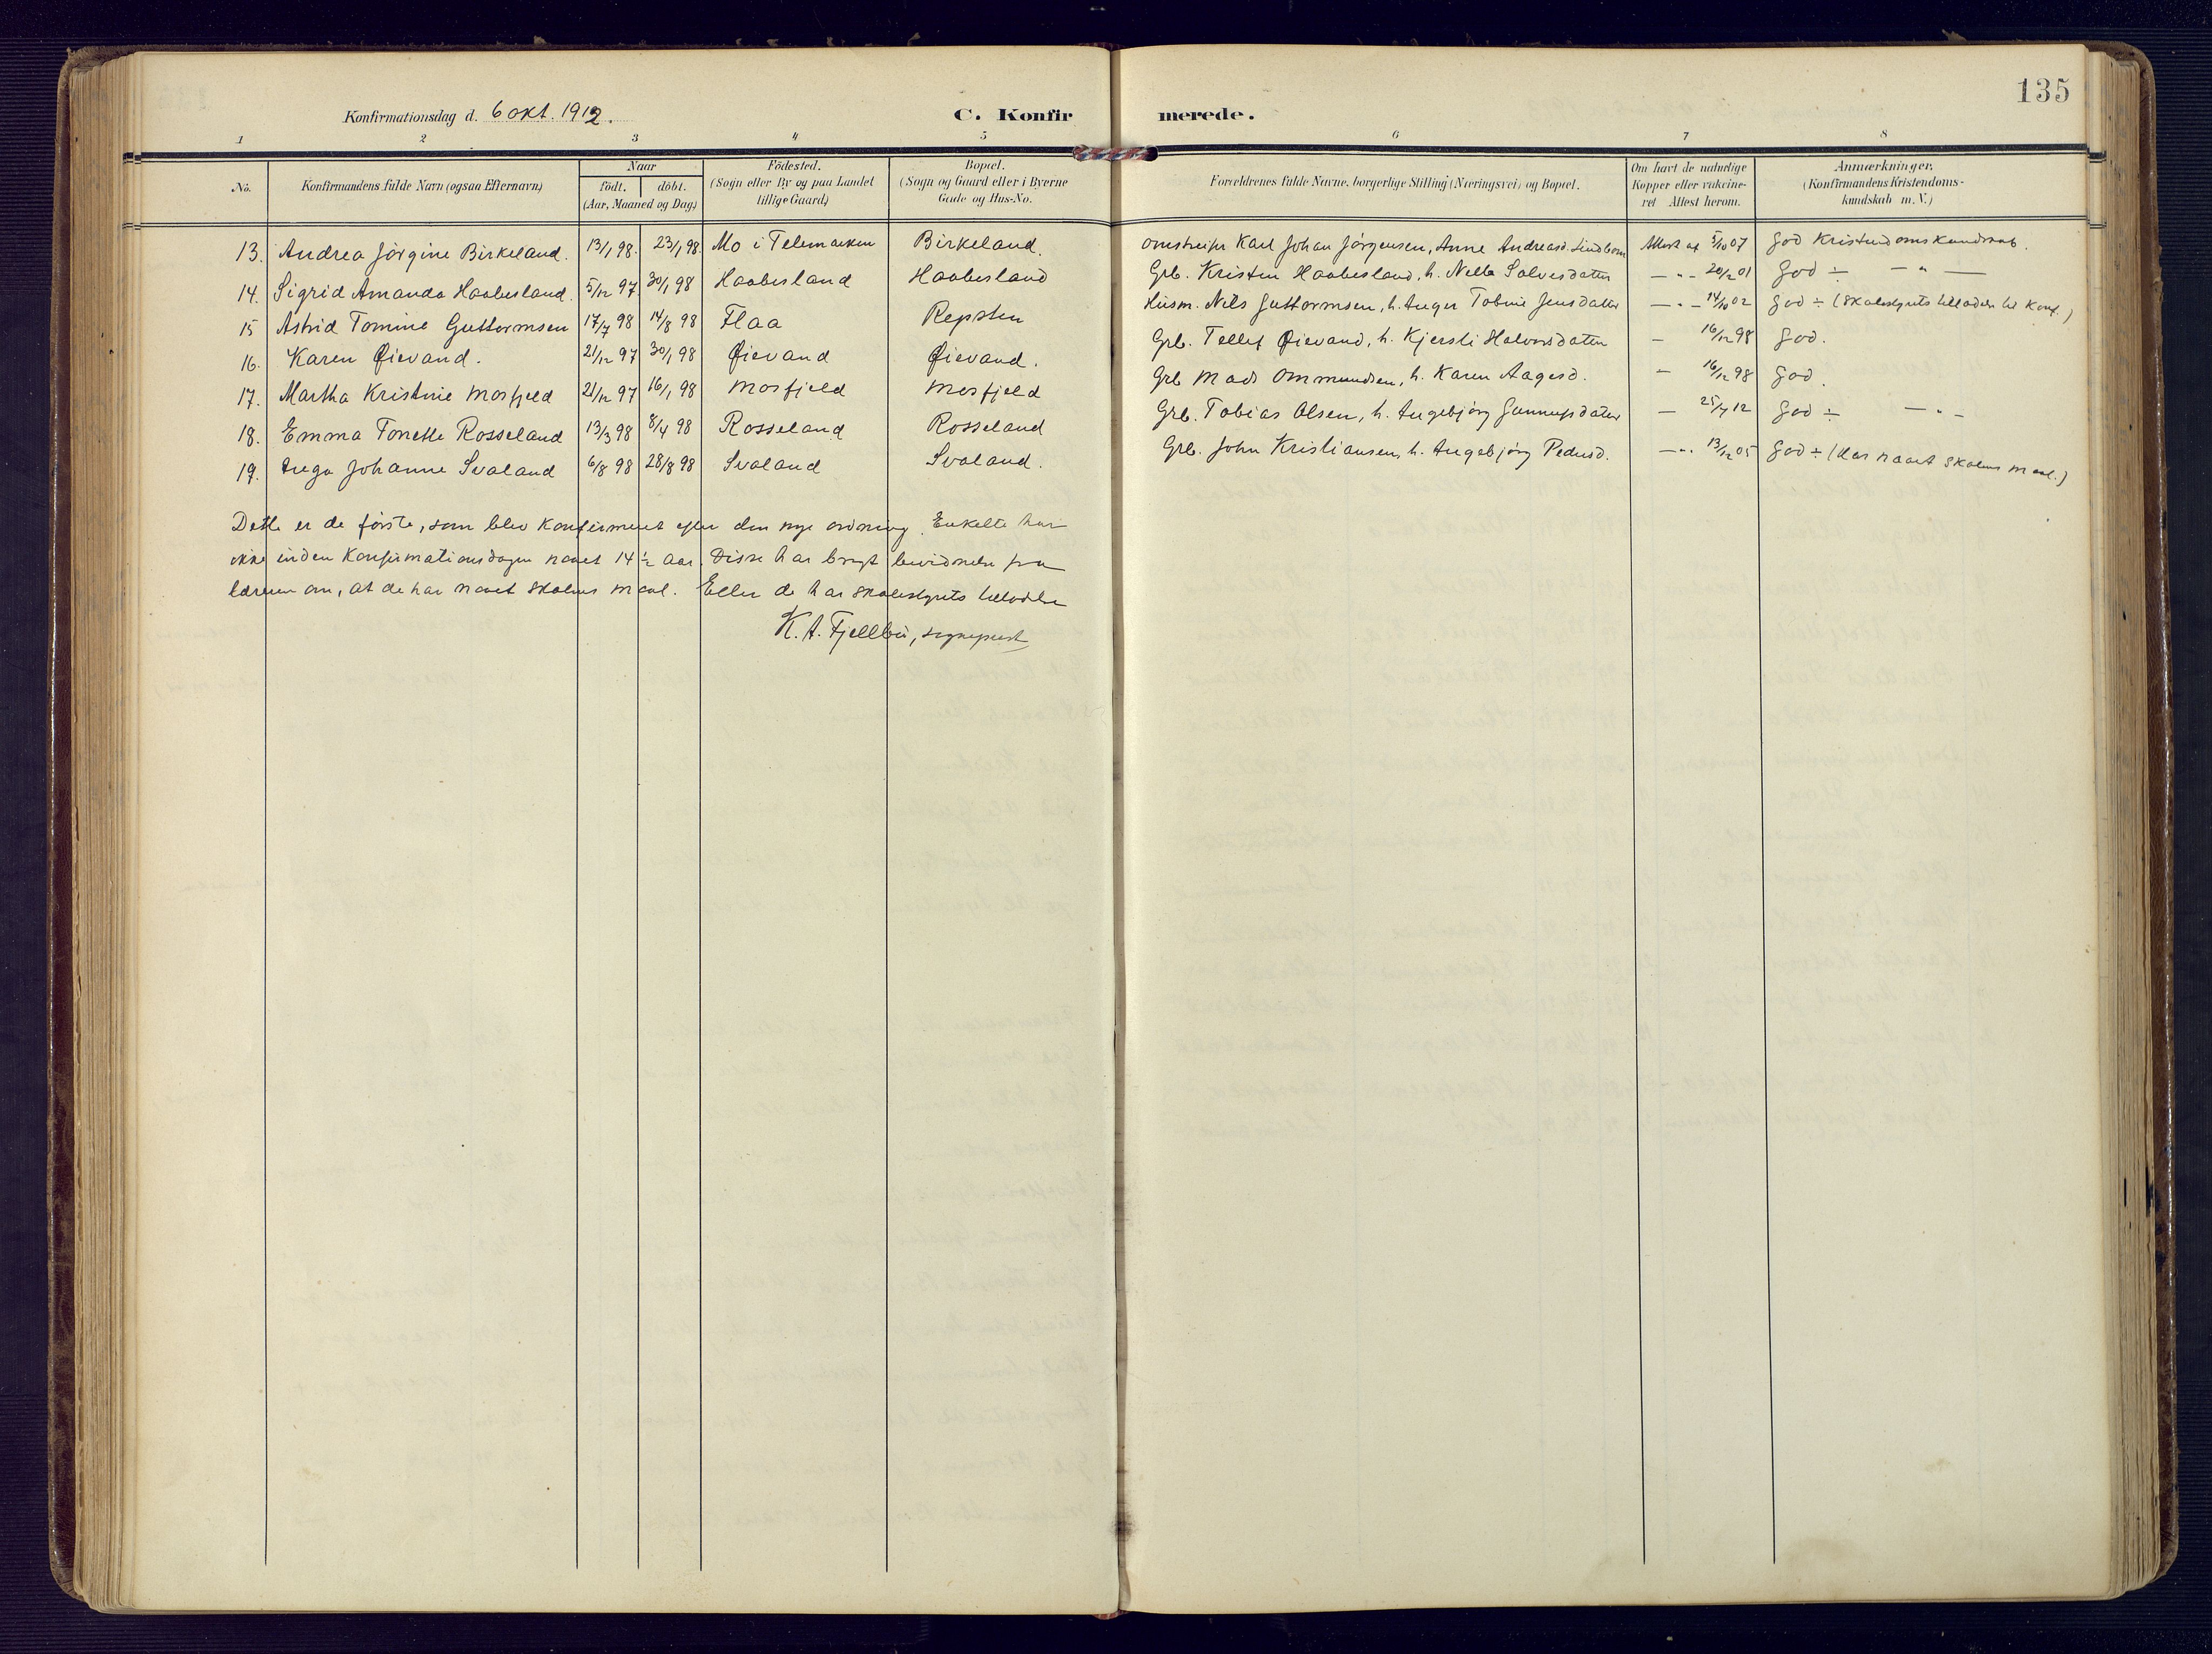 135
Konfirmationsdag d. 6 okt. 1912. C. Konfirmerede.
1 2 3 4 5 6 7 8
No. Konfirmandens fulde Navn (ogsaa Efternavn) Naar født. døbt. (Aar, Maaned og Dag) Födested. (Sogn eller By og paa Landet tillige Gaard) Bopæl. (Sogn og Gaard eller i Byerne Gade og Hus-No. Forældrenes fulde Navne, borgerlige Stilling (Næringsvei) og Bopæl. Om havt de naturlige Kopper eller vakcineret Attest herom. Anmærkninger. (Konfirmandens Kristendomskundskab m. V.)
13. Andrea Jörgine Birkeland. 13/1 98. 23/1 98 Mo i Telemarken Birkeland. Omstreifer Karl Johan Jörgensen, Anne Andreasd. Lindbom Attest af 5/10 07 God Kristendomskundskab.
14. Sigrid Amanda Haabesland. 5/12 97 30/1 98 Haabesland Haabesland Grb. Kristen Haabesland, h. Nella Salvesdatter — " — 20/12 01 God ÷ — " —
15 Astrid Tomine Guttormsen 17/7 98 14/8 98 Flaa Repsten Husm. Nils Guttormsen, h. Inger Tobine Jensdatter — " — 14/10 02 God ÷ (Skolestyrets tilladelse til Konf.)
16. Karen Øievand. 21/12 97 30/1 98 Øievand Øievand. Grb. Tellef Øievand, h. Kjersti Halvorsdatter — 16/12 98 God.
17. Martha Kristine Mosfjeld 21/12 97 16/1 98 Mosfjeld Mosfjeld Grb Mads Ommundsen, h. Karen Aagesd. — 16/12 98 God.
18. Emma Tonette Rosseland 13/3 98 8/4 98 Rosseland Rosseland Grb. Tobias Olsen, h. Ingebjörg Gunnufsdatter — 25/4 12 God ÷ — " —
19. Inga Johanne Svaland 6/8 98 28/8 98 Svaland Svaland. Grb. John Kristiansen, h. Ingebjörg Pedersd. — " 13/12 05 God ÷ (Har naaet skolens maal.)
Dette er de förste, som blev Konfirmeret efter den nye ordning. Enkelte har
ikke inden Konfirmationsdagen naaet 14 ½ aar. Disse har bragt bevidnelse fra
læreren om, at de har naaet skolens maal. Eller de har skolestyrets tilladelse
K. A. Fjellbu, sogneprest